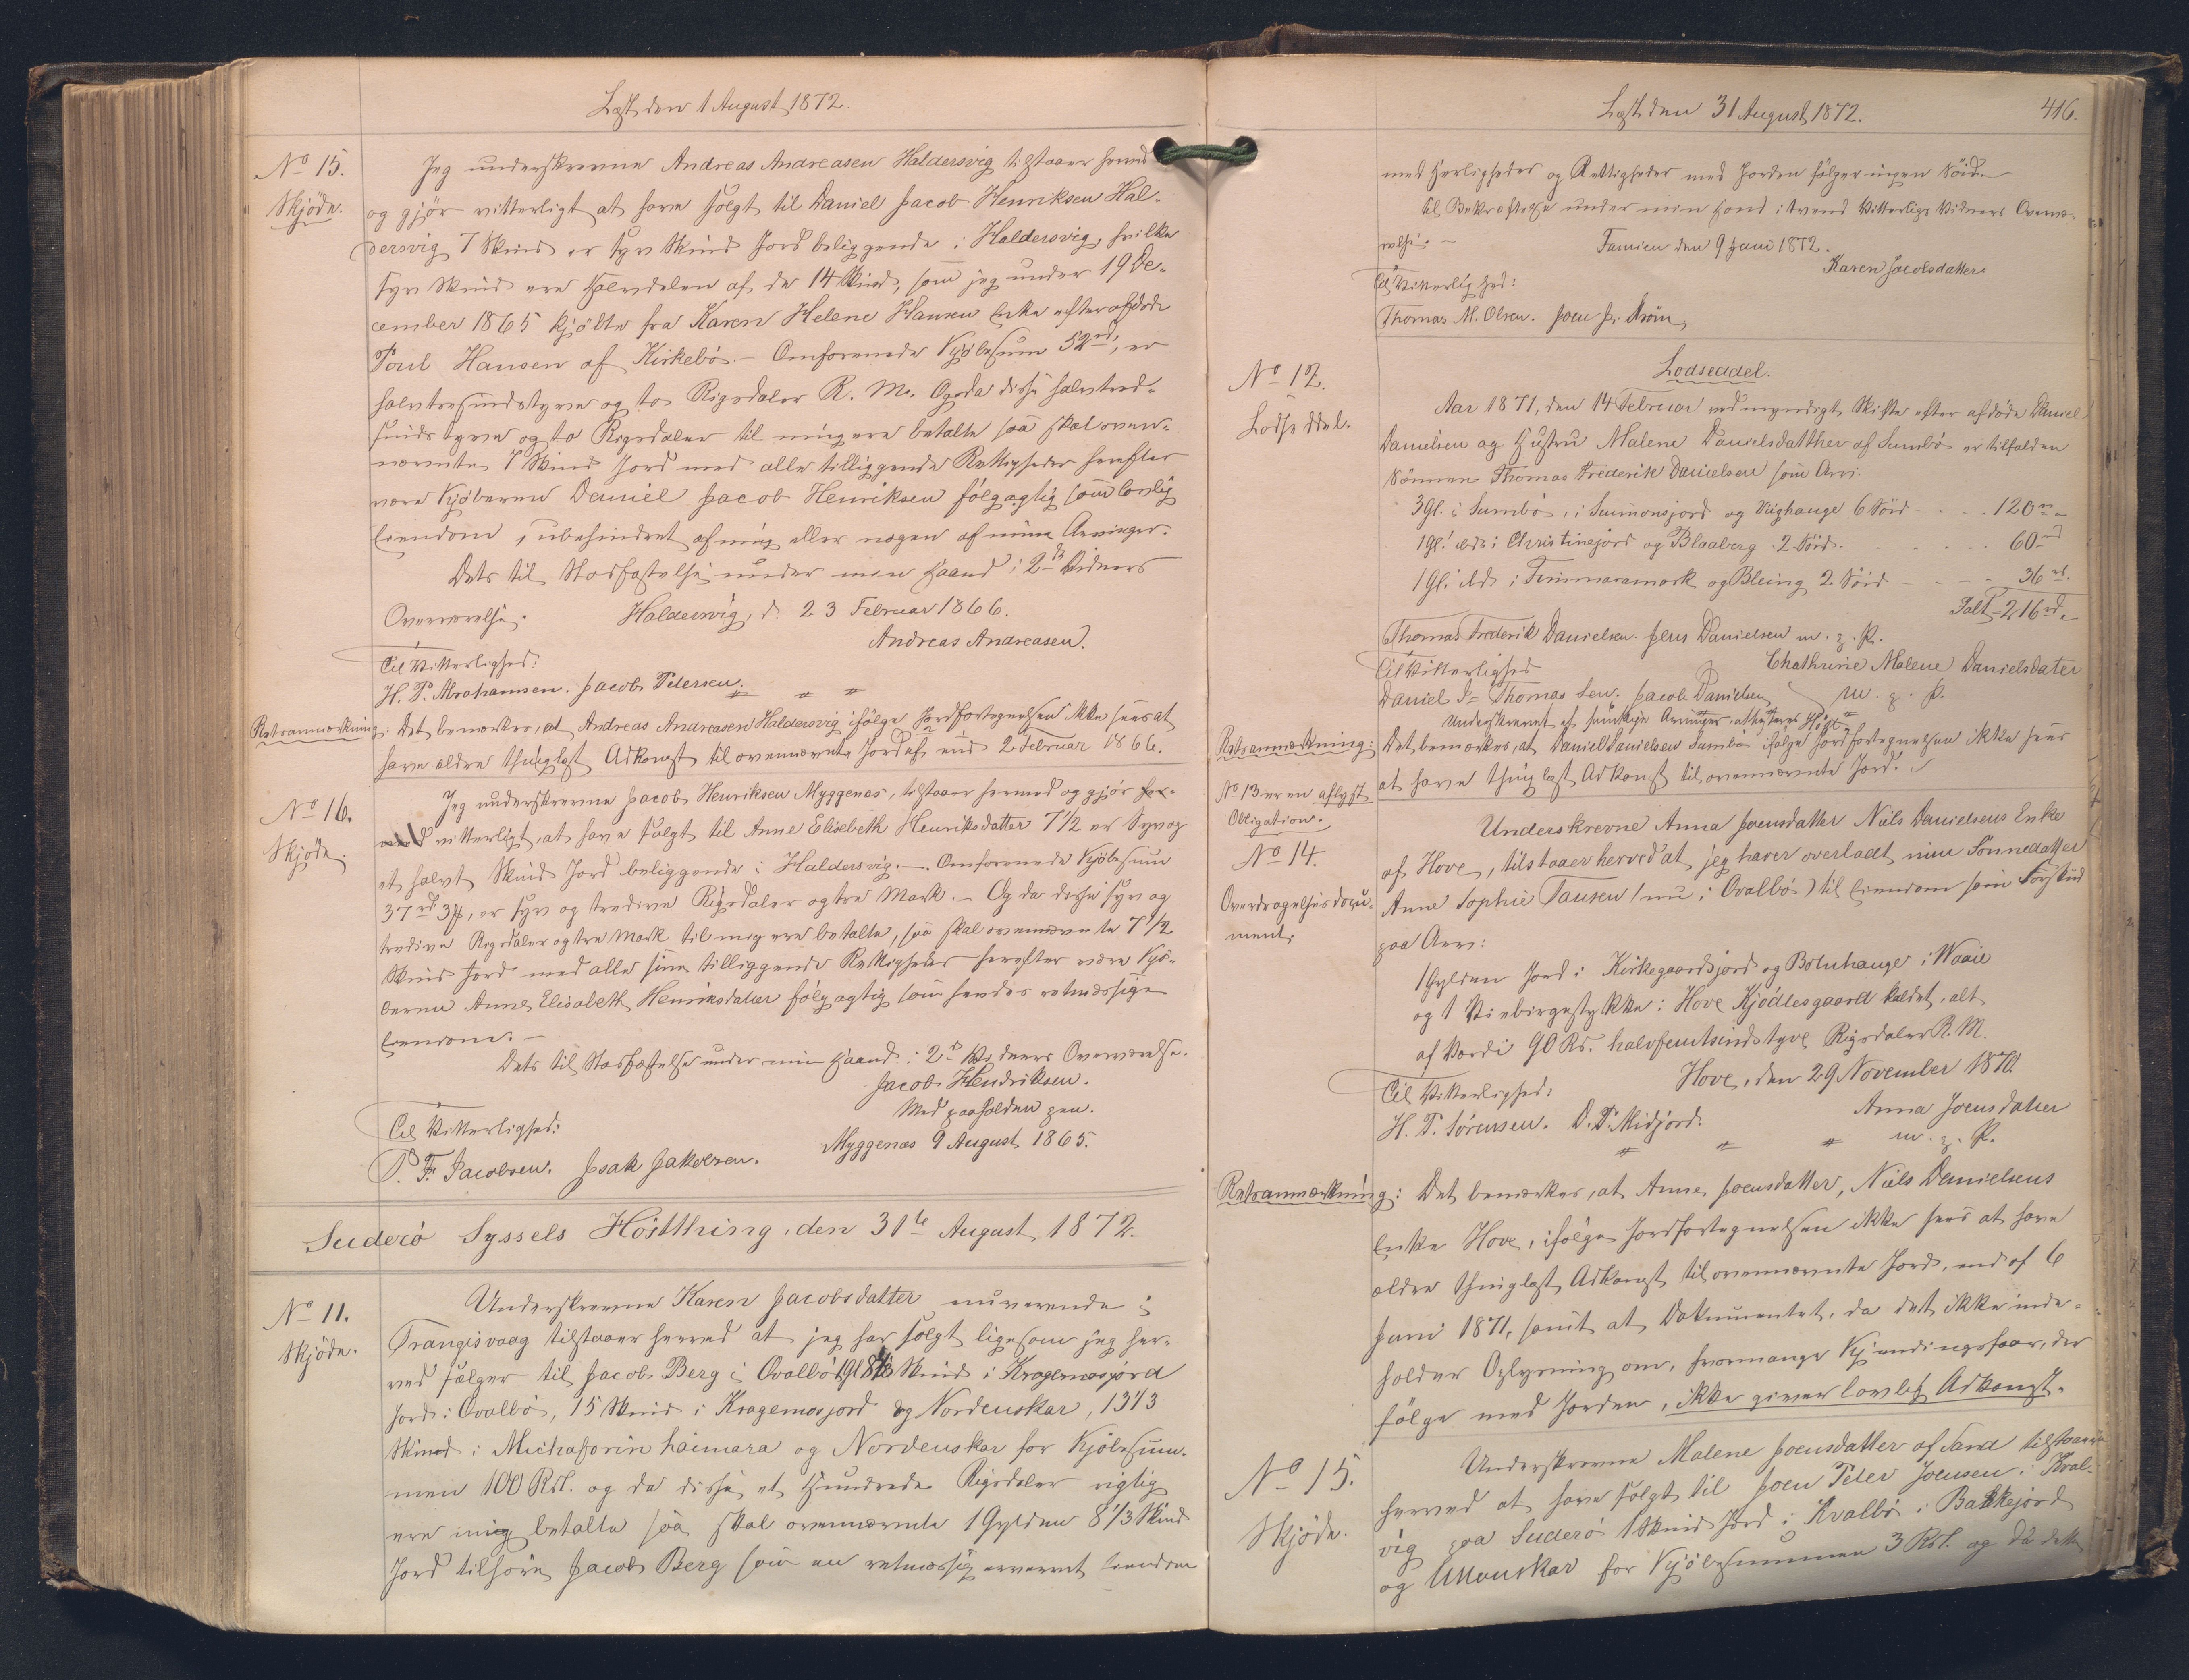 Læst den 1 August 1872.
No 15.
Skjöde.
Jeg underskrevne Andreas Andreasen Haldersvig tilstaaer herved
og gjör vitterligt at have solgt til Daniel Jacob Henriksen Hal-
dersvig 7 Skind er syv Skind Jord beliggende i Haldersvig, hvilke
syv Skind ere Halvdelen af de 14 Skind, som jeg under 19 De-
cember 1865 kjöbte fra Karen Helene Hansen Enke efter afdöde
Poul Hansen af Kirkebö. – Omforenede Kjöbesum 52 rd, er
halvtresindstyve og to Rigsdaler R. M. Og da disse halvtred-
sindstyve og to Rigsdaler til mig ere betalte saa skal oven-
nævnte 7 Skind Jord med alle tilliggende Rettigheder herefter
være Kjöberen Daniel Jacob Henriksen fölgagtig som lovlig
Eiendom, ubehindret af mig eller nogen af mine Arvinger.
Dets til Stadfæstelse under min Haand i 2de Vidners
Overværelse.
Haldersvig, d. 23 Februar 1866.
Andreas Andreasen.
Til Vitterlighed:
H. P. Abrahamsen. Jacob Petersen.
Retsanmærkning: Det bemærkes, at Andreas Andreasen Haldersvig ifölge Jordfortegnelsen ikke sees at
have ældre thinglæst Adkomst til ovennævnte Jord af end 2 Februar 1866.
No 16.
Skjöde.
Jeg underskrevne Jacob Henriksen Myggenæs, tilstaaer hermed og gjör her-
med vitterligt, at have solgt til Anne Elisebeth Henriksdatter 7 1/2 er Syv og
et halvt Skind Jord beliggende i Haldersvig. –. Omforenede Kjöbesum
37 rd 3 ℳ, er syv og tredive Rigsdaler og tre Mark. – Og da disse syv og
tredive Rigsdaler og tre Mark til mig ere betalte, saa skal ovennævnte 7 1/2
Skind Jord med alle sine tilliggende Rettigheder herefter være Kjö-
beren Anne Elisabeth Henriksdatter fölgagtig som hendes retmæssige
Eiendom. –
Dets til Stadfæstelse under min Haand i 2de Vidners Overværelse.
Jacob Hendriksen.
Med paaholden pen.
Til Vitterlighed:
Myggenæs 9 August 1865.
P. F. Jacobsen. Isak Jakobsen.
Suderö Syssels Höstthing, den 31te August 1872.
No 11.
Skjöde.
Underskrevne Karen Jacobsdatter nuværende i
Trangisvaag tilstaaer herved at jeg har solgt ligesom jeg her-
ved sælger til Jacob Berg i Qvalbö 1 Gl 8 1/3 Skind i Kragemosjord
Jord i Qvalbö, 15 Skind i Kragemosjord og Nordenskar, 13 1/3
Skind i Nordenskar for Kjöbesum-
men 100 Rdl. og da disse et Hundrede Rigsdaler rigtig
ere mig betalte saa skal ovennævnte 1 Gylden 8 1/3 Skind
Jord tilhöre Jacob Berg som en retmæssig erværvet Eiendom
Læst den 31 August 1872.
416.
med Herligheder og Rettigheder med Jorden fölger ingen Söide
til Bekræftelse under min Haand i tvende Vitterligh Vidners Overvæ-
relse. –
Famien den 9 Juni 1872.
Karen Jacobsdatter
Til Vitterlighed:
Thomas M. Olsen. Joen Jr. Ström
No 12.
Lodseddel.
Lodseddel.
Aar 1871, den 14 Februar ved myndigt Skifte efter afdöde Daniel
Danielsen og Hustru Malene Danielsdatther af Sumbö er tilfalden
Sönnen Thomas Frederik Danielsen som Arv:
3 Gl. i Sumbö, i Simmonsjord og Viighauge 6 Söid . . . 120 rd
1 Gl. ibd. i Christinejord og Blaaberg 2 Söid . . . 60 rd
1 Gl. ibd. i og Bleing 2 Söid . . . 36 rd.
Ialt – 216 rd.
Thomas Frederik Danielsen. Jens Danielsen m. p. P.
Til Vitterlighed
Chathrine Malene Danielsdater
Daniel Thomas Sen. Jacob Danielsen
m. p. P.
Underskrevet af samtlige Arvinger, attesteres
Retsanmærkning: Det bemærkes, at Daniel Danielsen Sumbö ifölge Jordfortegnelsen ikke sees
at have thinglæst Adkomst til ovennævnte Jord.
No 13 er en aflyst
Obligation.
No 14.
Overdragelsesdocu-
ment.
Underskrevne Anna Joensdatter Niels Danielsens Enke
af Hove, tilstaaer herved at jeg haver overladt min Sönnedatter
Anne Sophie Tausen (nu i Qvalbö) til Eiendom som Forskud
paa Arv:
1 Gylden Jord i Kirkegaardsjord og Bolnhauge i Waaie
og 1 Stykke i Hove Kjödlesgaard kaldet, alt
af Værdi 90 Rd. halvfemtsindstyve Rigsdaler R. M.
Hove, den 29 November 1870
Til Vitterlighed:
Anna Joensdatter
H. P. Sörensen. D. P. Midjord.
m. p. P.
Retsanmærkning: Det bemærkes, at Anne Joensdatter, Niels Danielsens
Enke Hove, ifölge Jordfortegnelsen ikke sees at have
ældre thinglæst Adkomst til ovennævnte Jord, end af 6
Juni 1871, samt at Dokumentet, da det ikke inde-
holder Oplysning om, hvormange Kjendingsfaar, der
fölge med Jorden, ikke giver lovlig Adkomst.
No 15.
Skjöde.
Underskrevne Malene Joensdatter af Sand tilstaaer
herved at have solgt til Joen Peter Joensen i Hval-
vig paa Suderö 1 Skind Jord i Kvalbö i Bakkejord
og for Kjöbesummen 3 Rdl. og da dette